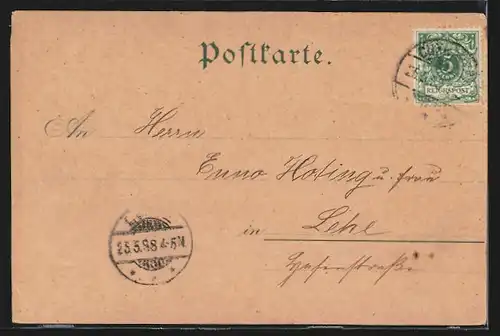 Postkarte.
5
REICHSPOST
An Herrn
Enno Hoting u. Frau
in Lehe
Hafenstraße
25.5.98 4-5N